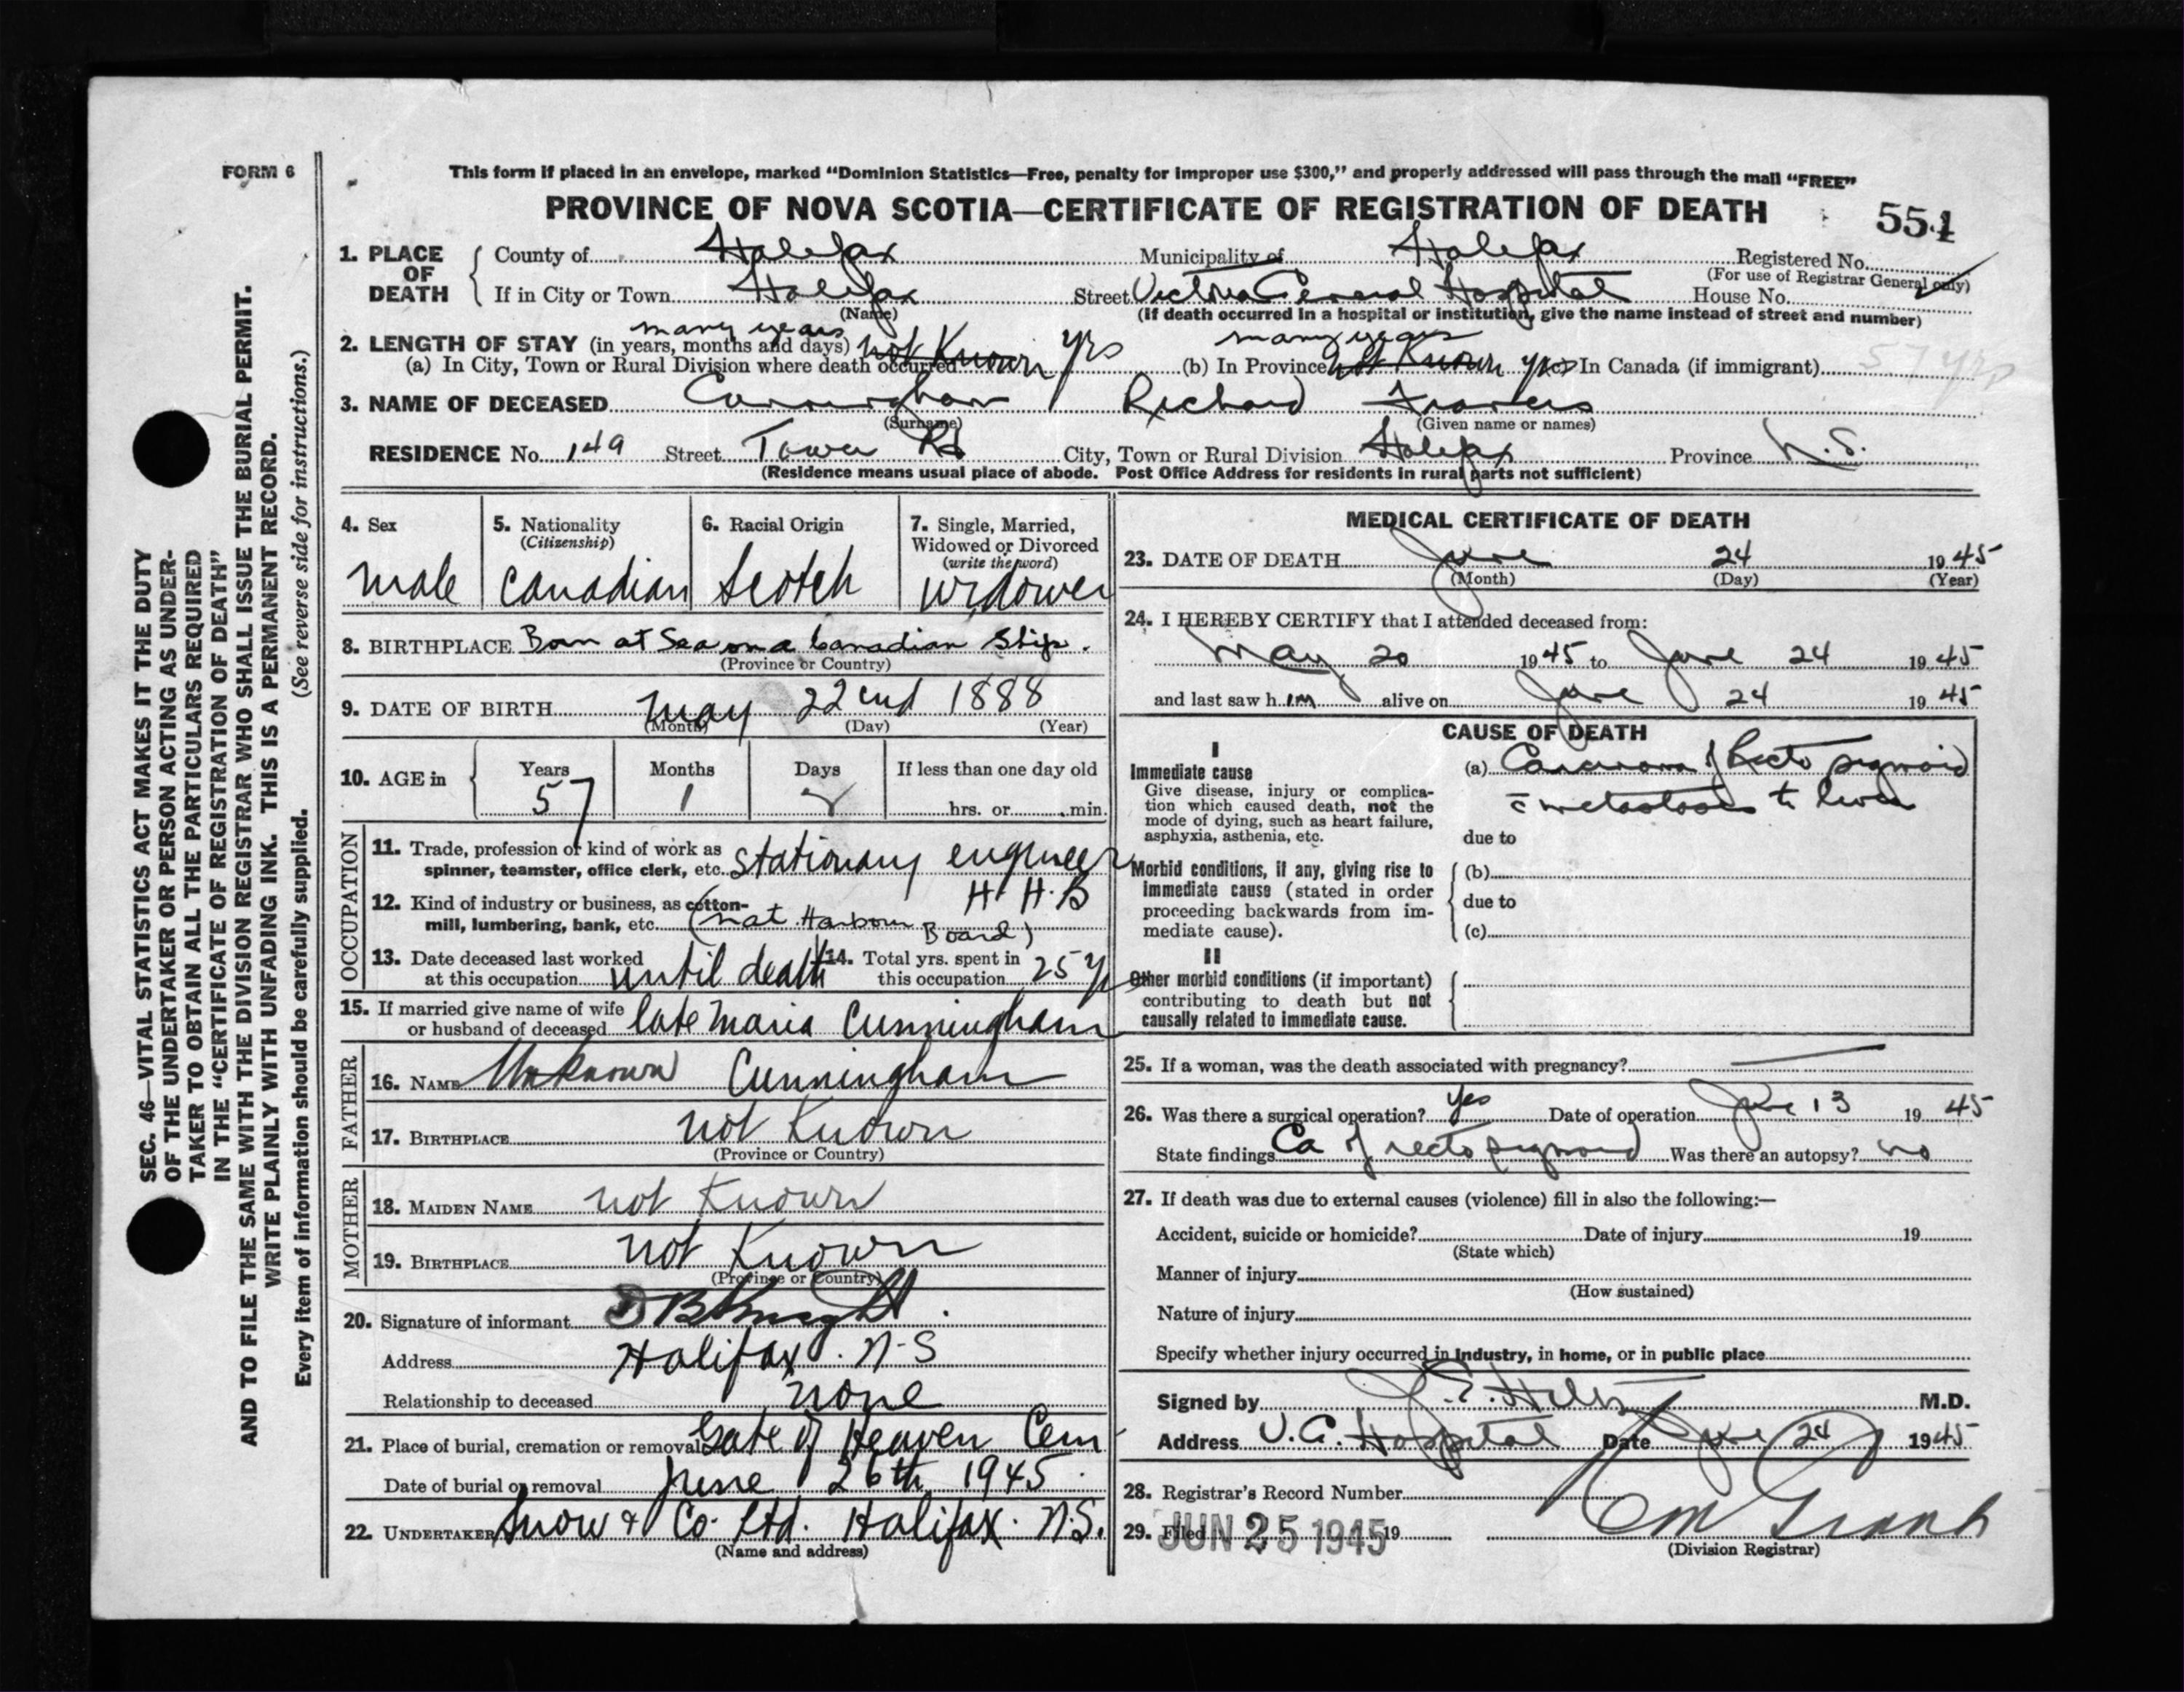 FORM 6
This form if placed in an envelope, marked “Dominion Statistics—Free, penalty for improper use $300,” and properly addressed will pass through the mail “FREE”
PROVINCE OF NOVA SCOTIA—CERTIFICATE OF REGISTRATION OF DEATH
551
1. PLACE OF DEATH
County of Halifax Municipality of Halifax Registered No.
(For use of Registrar General only)
If in City or Town Halifax Street Victoria General Hospital House No.
(Name) (If death occurred in a hospital or institution, give the name instead of street and number)
many years many years
2. LENGTH OF STAY (in years, months and days) not Known yrs
(a) In City, Town or Rural Division where death occurred (b) In Province not Known yrs (c) In Canada (if immigrant) 57 yrs
3. NAME OF DECEASED Cunningham Richard Francis
(Surname) (Given name or names)
RESIDENCE No. 149 Street Tower Rd City, Town or Rural Division Halifax Province N.S.
(Residence means usual place of abode. Post Office Address for residents in rural parts not sufficient)
4. Sex
male
5. Nationality
(Citizenship)
Canadian
6. Racial Origin
Scotch
7. Single, Married,
Widowed or Divorced
(write the word)
Widower
8. BIRTHPLACE Born at Sea on a Canadian Ship.
(Province or Country)
9. DATE OF BIRTH May 22nd 1888
(Month) (Day) (Year)
10. AGE in Years Months Days If less than one day old
57 1 2 hrs. or min.
OCCUPATION
11. Trade, profession or kind of work as
spinner, teamster, office clerk, etc. Stationary engineer
12. Kind of industry or business, as cotton- H. H. B
mill, lumbering, bank, etc. (Nat. Harbour Board)
13. Date deceased last worked
at this occupation until death
14. Total yrs. spent in
this occupation 25 y
15. If married give name of wife
or husband of deceased late Maria Cunningham
FATHER
16. NAME Unknown Cunningham
17. BIRTHPLACE not Known
(Province or Country)
MOTHER
18. MAIDEN NAME not Known
19. BIRTHPLACE not Known
(Province or Country)
20. Signature of informant B Knight
Address Halifax. N-S
Relationship to deceased none
21. Place of burial, cremation or removal Gate of Heaven Cem
Date of burial or removal June 26th 1945
22. UNDERTAKER Snow & Co. Ltd. Halifax. N.S.
(Name and address)
MEDICAL CERTIFICATE OF DEATH
23. DATE OF DEATH June 24 1945
(Month) (Day) (Year)
24. I HEREBY CERTIFY that I attended deceased from:
May 20 1945 to June 24 1945
and last saw him alive on June 24 1945
CAUSE OF DEATH
I
Immediate cause
Give disease, injury or complica-
tion which caused death, not the
mode of dying, such as heart failure,
asphyxia, asthenia, etc.
(a) Carcinoma of Recto sigmoid
c̄ metastases to liver
due to
Morbid conditions, if any, giving rise to
immediate cause (stated in order
proceeding backwards from im-
mediate cause).
(b)
due to
(c)
II
Other morbid conditions (if important)
contributing to death but not
causally related to immediate cause.
25. If a woman, was the death associated with pregnancy?
26. Was there a surgical operation? Yes Date of operation June 13 1945
State findings Ca of recto sigmoid Was there an autopsy? no
27. If death was due to external causes (violence) fill in also the following:—
Accident, suicide or homicide? Date of injury 19
(State which)
Manner of injury
(How sustained)
Nature of injury
Specify whether injury occurred in industry, in home, or in public place
Signed by J. E. M.D.
Address V.G. Hospital Date June 24 1945
28. Registrar's Record Number
29. Filed JUN 25 1945 19
(Division Registrar)
SEC. 46—VITAL STATISTICS ACT MAKES IT THE DUTY
OF THE UNDERTAKER OR PERSON ACTING AS UNDER-
TAKER TO OBTAIN ALL THE PARTICULARS REQUIRED
IN THE “CERTIFICATE OF REGISTRATION OF DEATH”
AND TO FILE THE SAME WITH THE DIVISION REGISTRAR WHO SHALL ISSUE THE BURIAL PERMIT.
WRITE PLAINLY WITH UNFADING INK. THIS IS A PERMANENT RECORD.
Every item of information should be carefully supplied. (See reverse side for instructions.)